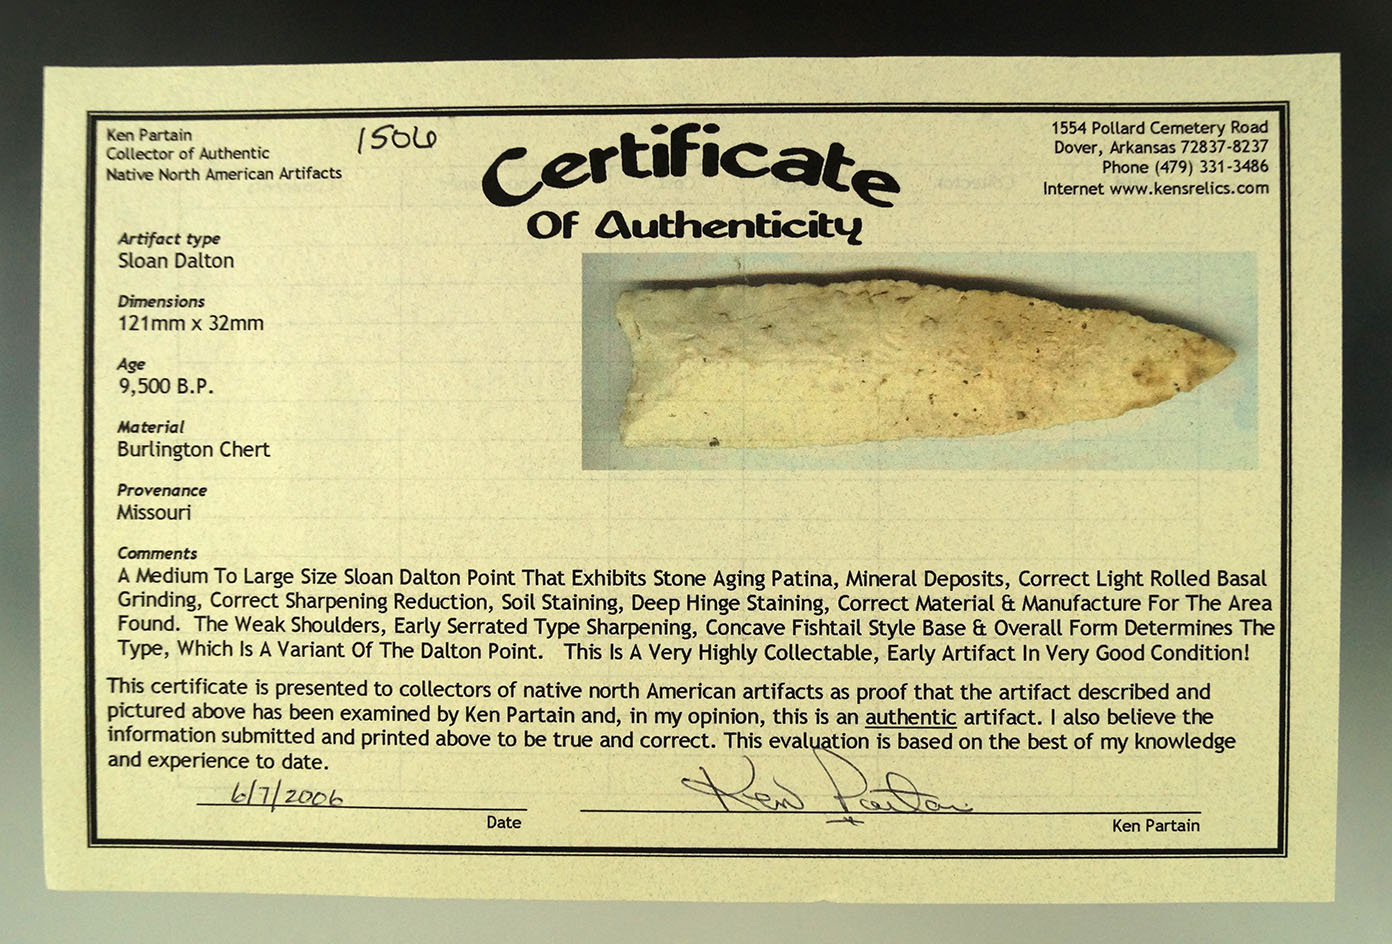 Ken Partain
Collector of Authentic
Native North American Artifacts
1506
Certificate
Of Authenticity
1554 Pollard Cemetery Road
Dover, Arkansas 72837-8237
Phone (479) 331-3486
Internet www.kensrelics.com
Artifact type
Sloan Dalton
Dimensions
121mm x 32mm
Age
9,500 B.P.
Material
Burlington Chert
Provenance
Missouri
Comments
A Medium To Large Size Sloan Dalton Point That Exhibits Stone Aging Patina, Mineral Deposits, Correct Light Rolled Basal
Grinding, Correct Sharpening Reduction, Soil Staining, Deep Hinge Staining, Correct Material & Manufacture For The Area
Found. The Weak Shoulders, Early Serrated Type Sharpening, Concave Fishtail Style Base & Overall Form Determines The
Type, Which Is A Variant Of The Dalton Point. This Is A Very Highly Collectable, Early Artifact In Very Good Condition!
This certificate is presented to collectors of native north American artifacts as proof that the artifact described and
pictured above has been examined by Ken Partain and, in my opinion, this is an authentic artifact. I also believe the
information submitted and printed above to be true and correct. This evaluation is based on the best of my knowledge
and experience to date.
6/7/2006
Ken Partain
Date
Ken Partain